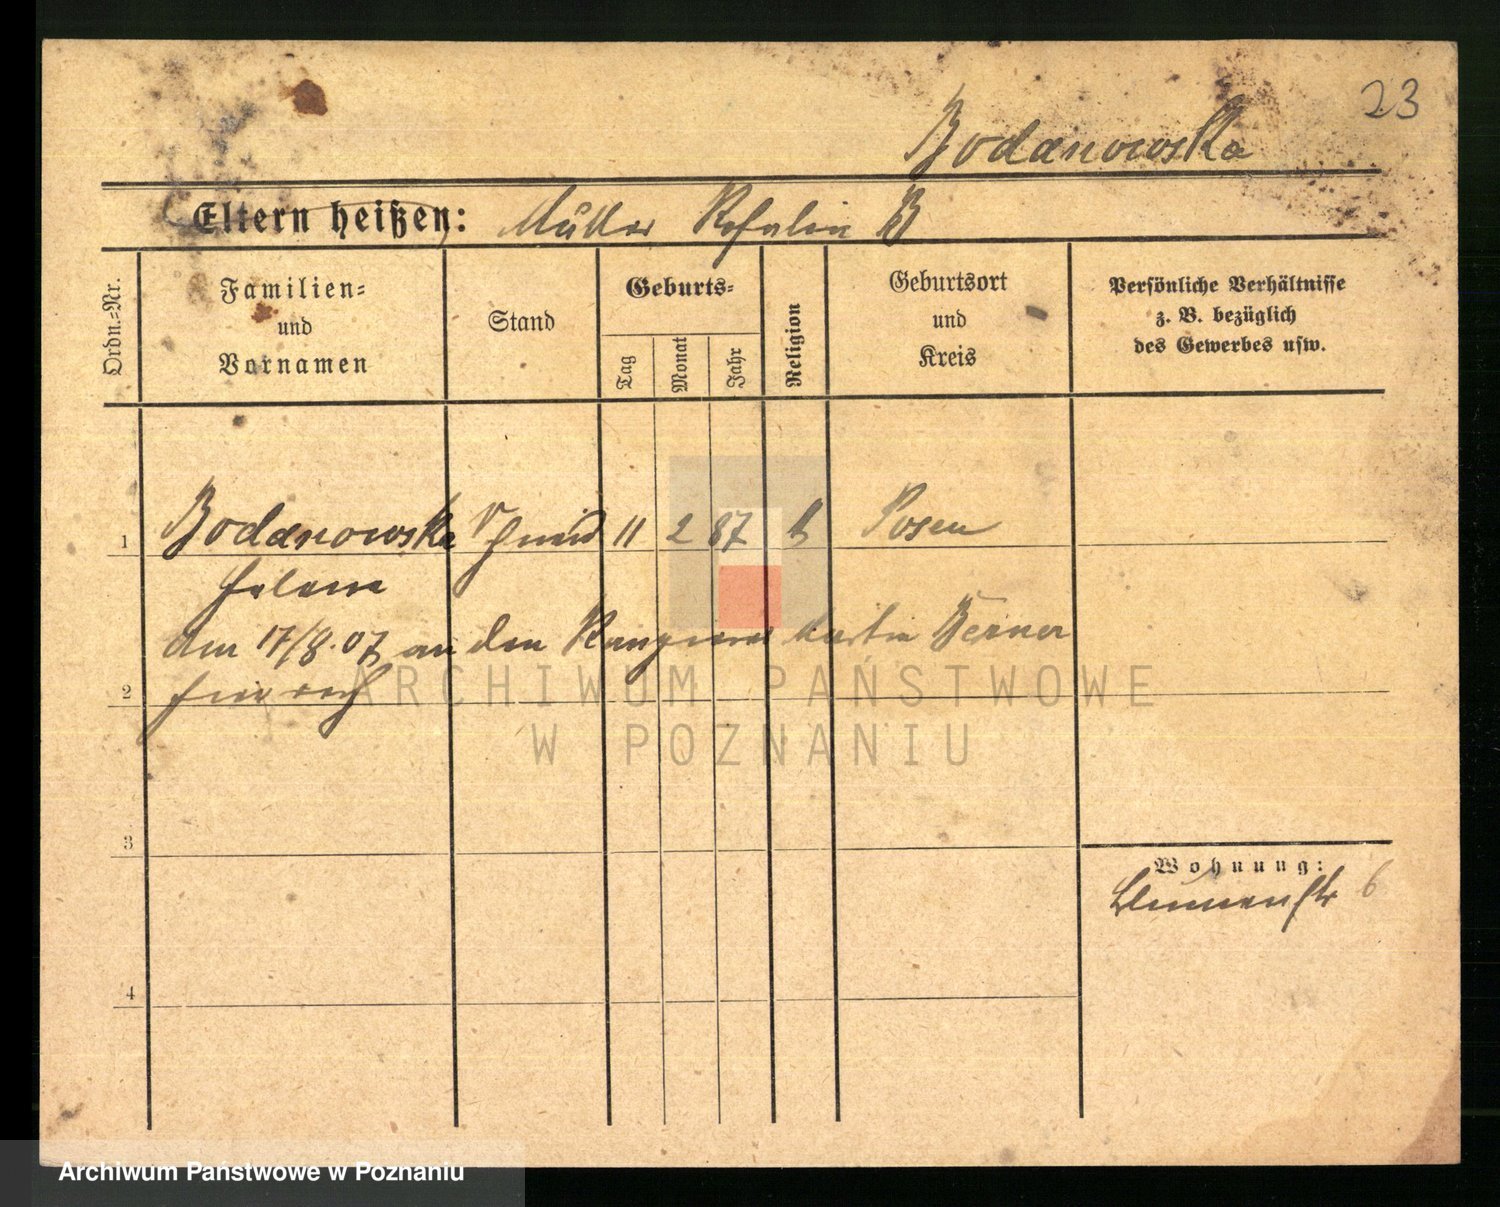 23
Bodanowska
Eltern heißen: Müller Rosalin B
Ordn.-Nr.
Familien-
und
Vornamen
Stand
Geburts-
Tag
Monat
Jahr
Religion
Geburtsort
und
Kreis
Persönliche Verhältnisse
z. B. bezüglich
des Gewerbes usw.
1 Bodanowska 11 2 87 k Posen
Helene
am 17/8.07 an den Martin Berner
2
ARCHIWUM PAŃSTWOWE
W POZNANIU
3
Wohnung:
Blumenstr 6
4
Archiwum Państwowe w Poznaniu